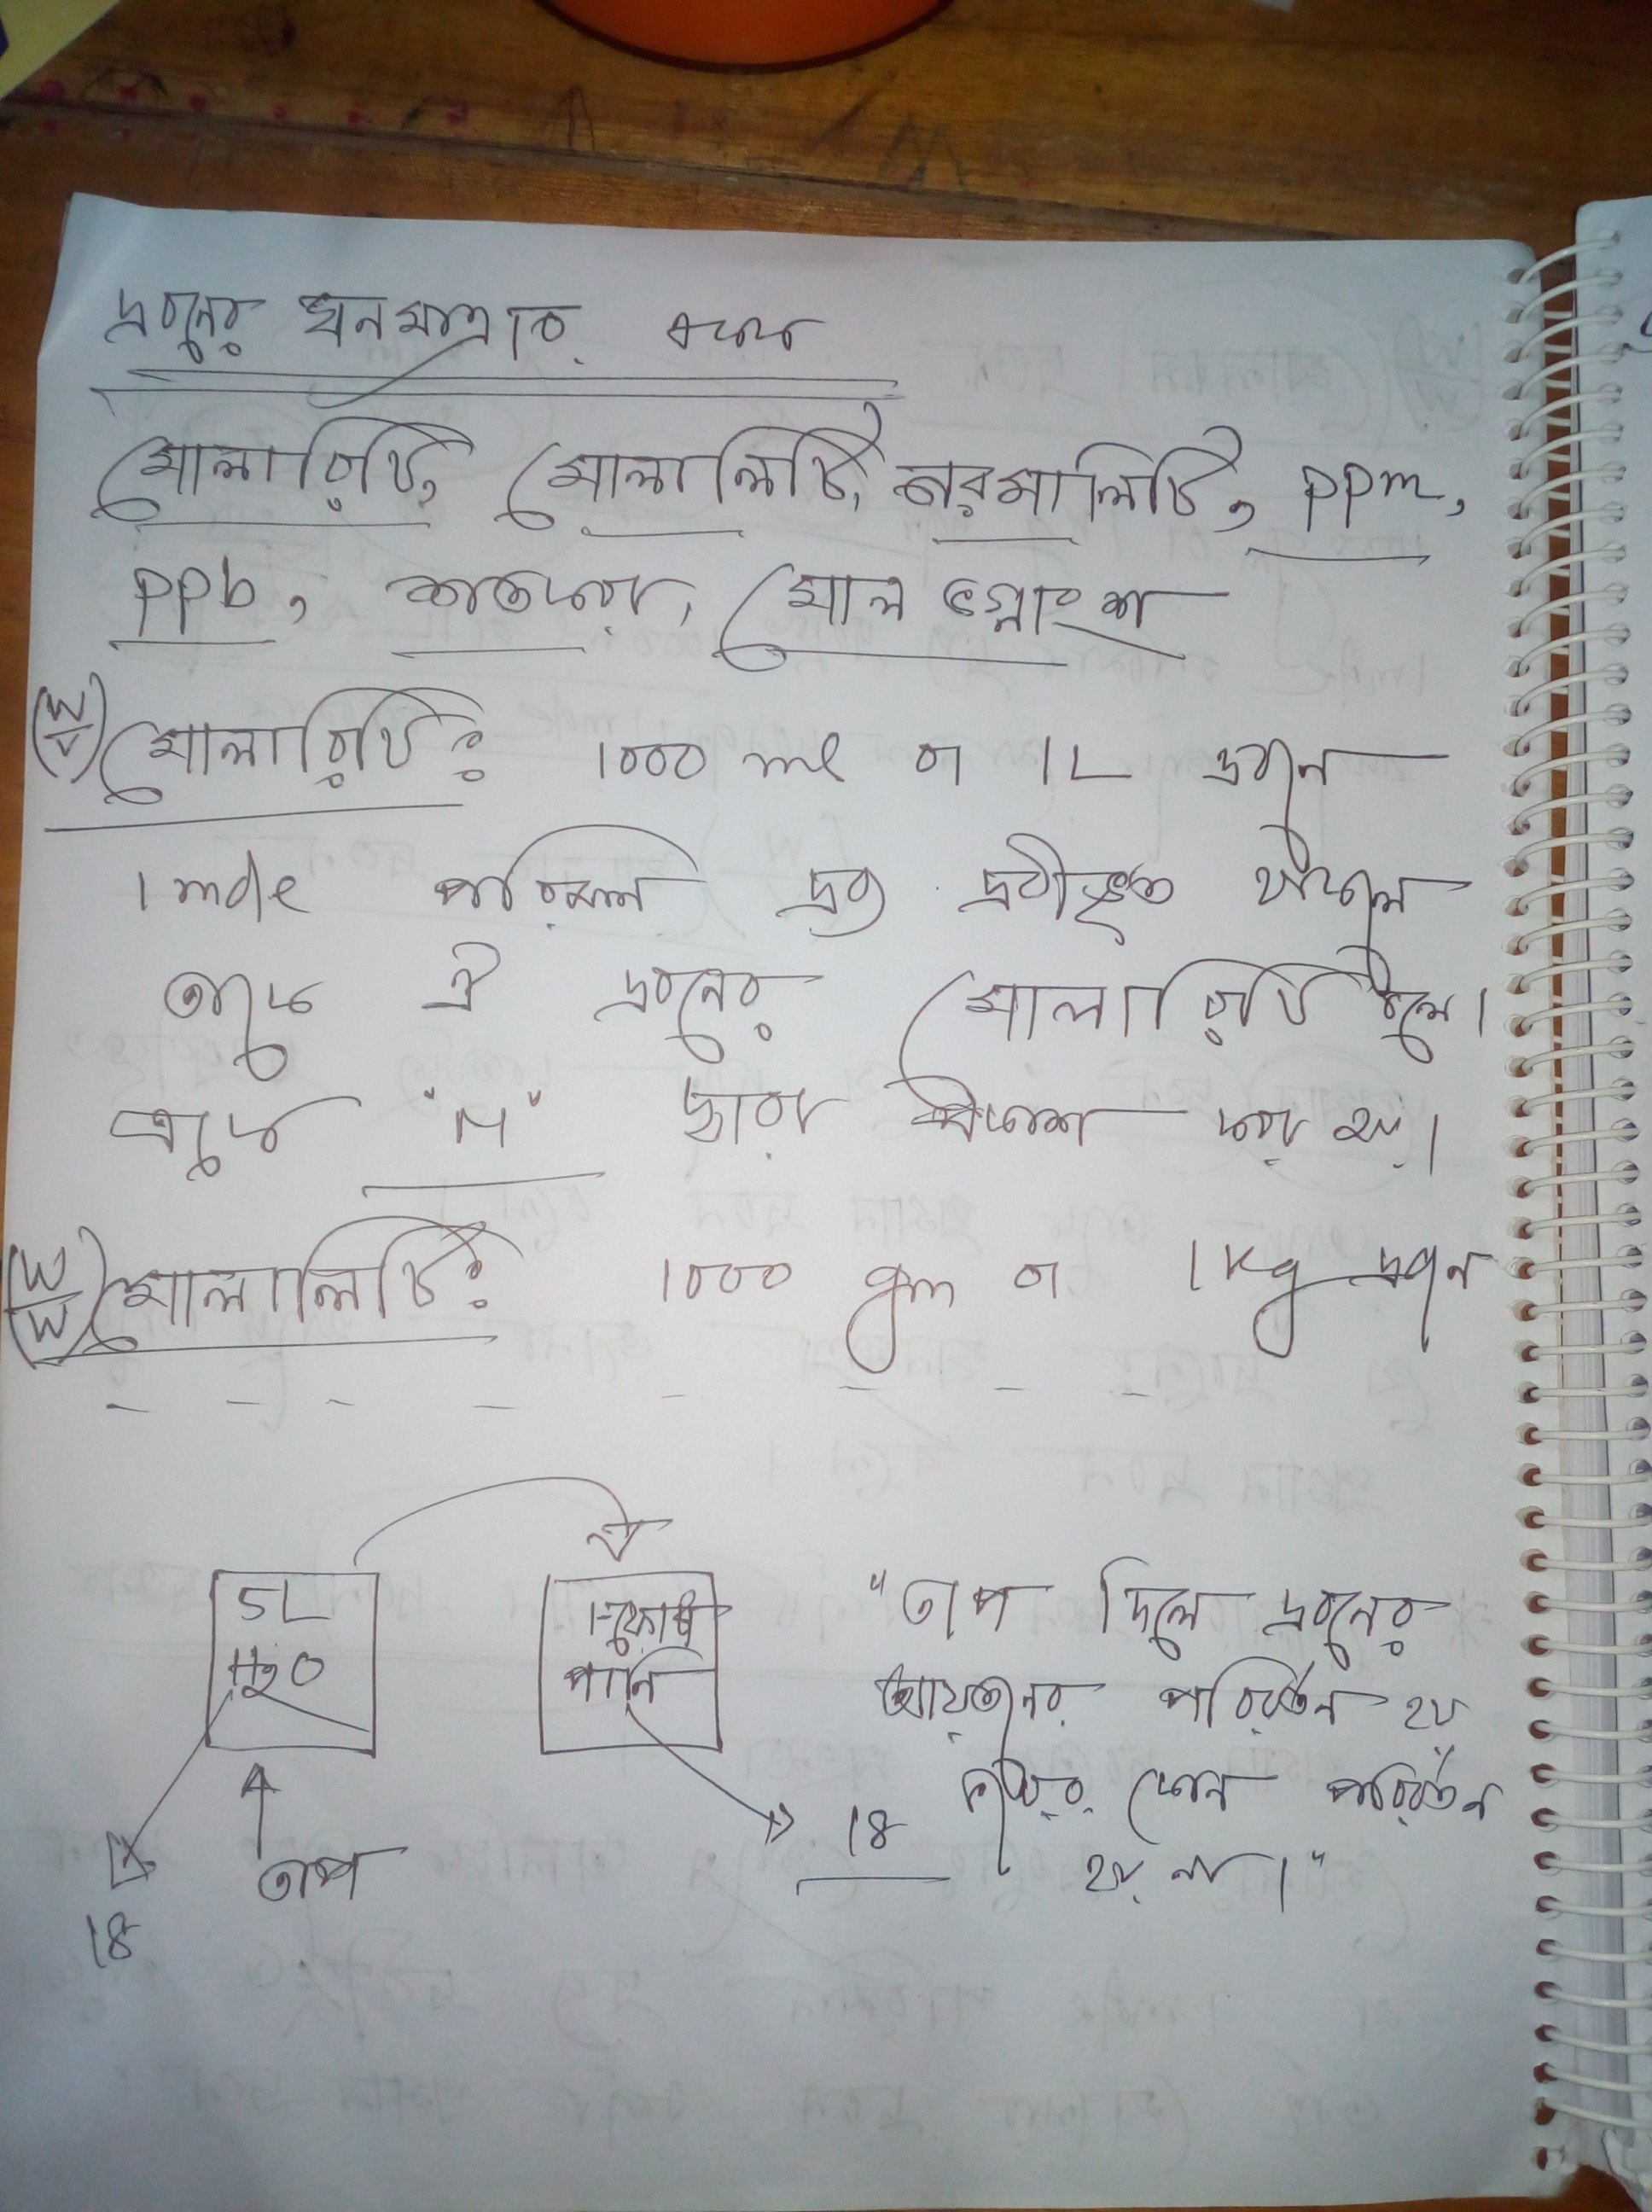 দ্রবনের ঘনমাত্রার একক
মোলারিটি, মোলালিটি, নরমালিটি, ppm,
ppb, শতকরা, মোল ভগ্নাংশ
(W/V) মোলারিটিঃ 1000 ml বা 1L দ্রবনে
1 mole পরিমান দ্রব্য দ্রবীভূত থাকলে
তাকে ঐ দ্রবনের মোলারিটি বলে।
একে "M" দ্বারা প্রকাশ করা হয়।
(W/W) মোলালিটিঃ 1000 gm বা 1 kg দ্রবনে
5L
H2O
পানি
18
তাপ
18
"তাপ দিলে দ্রবনের
আয়তনের পরিবর্তন হয়
ভরের কোন পরিবর্তন
হয় না।"